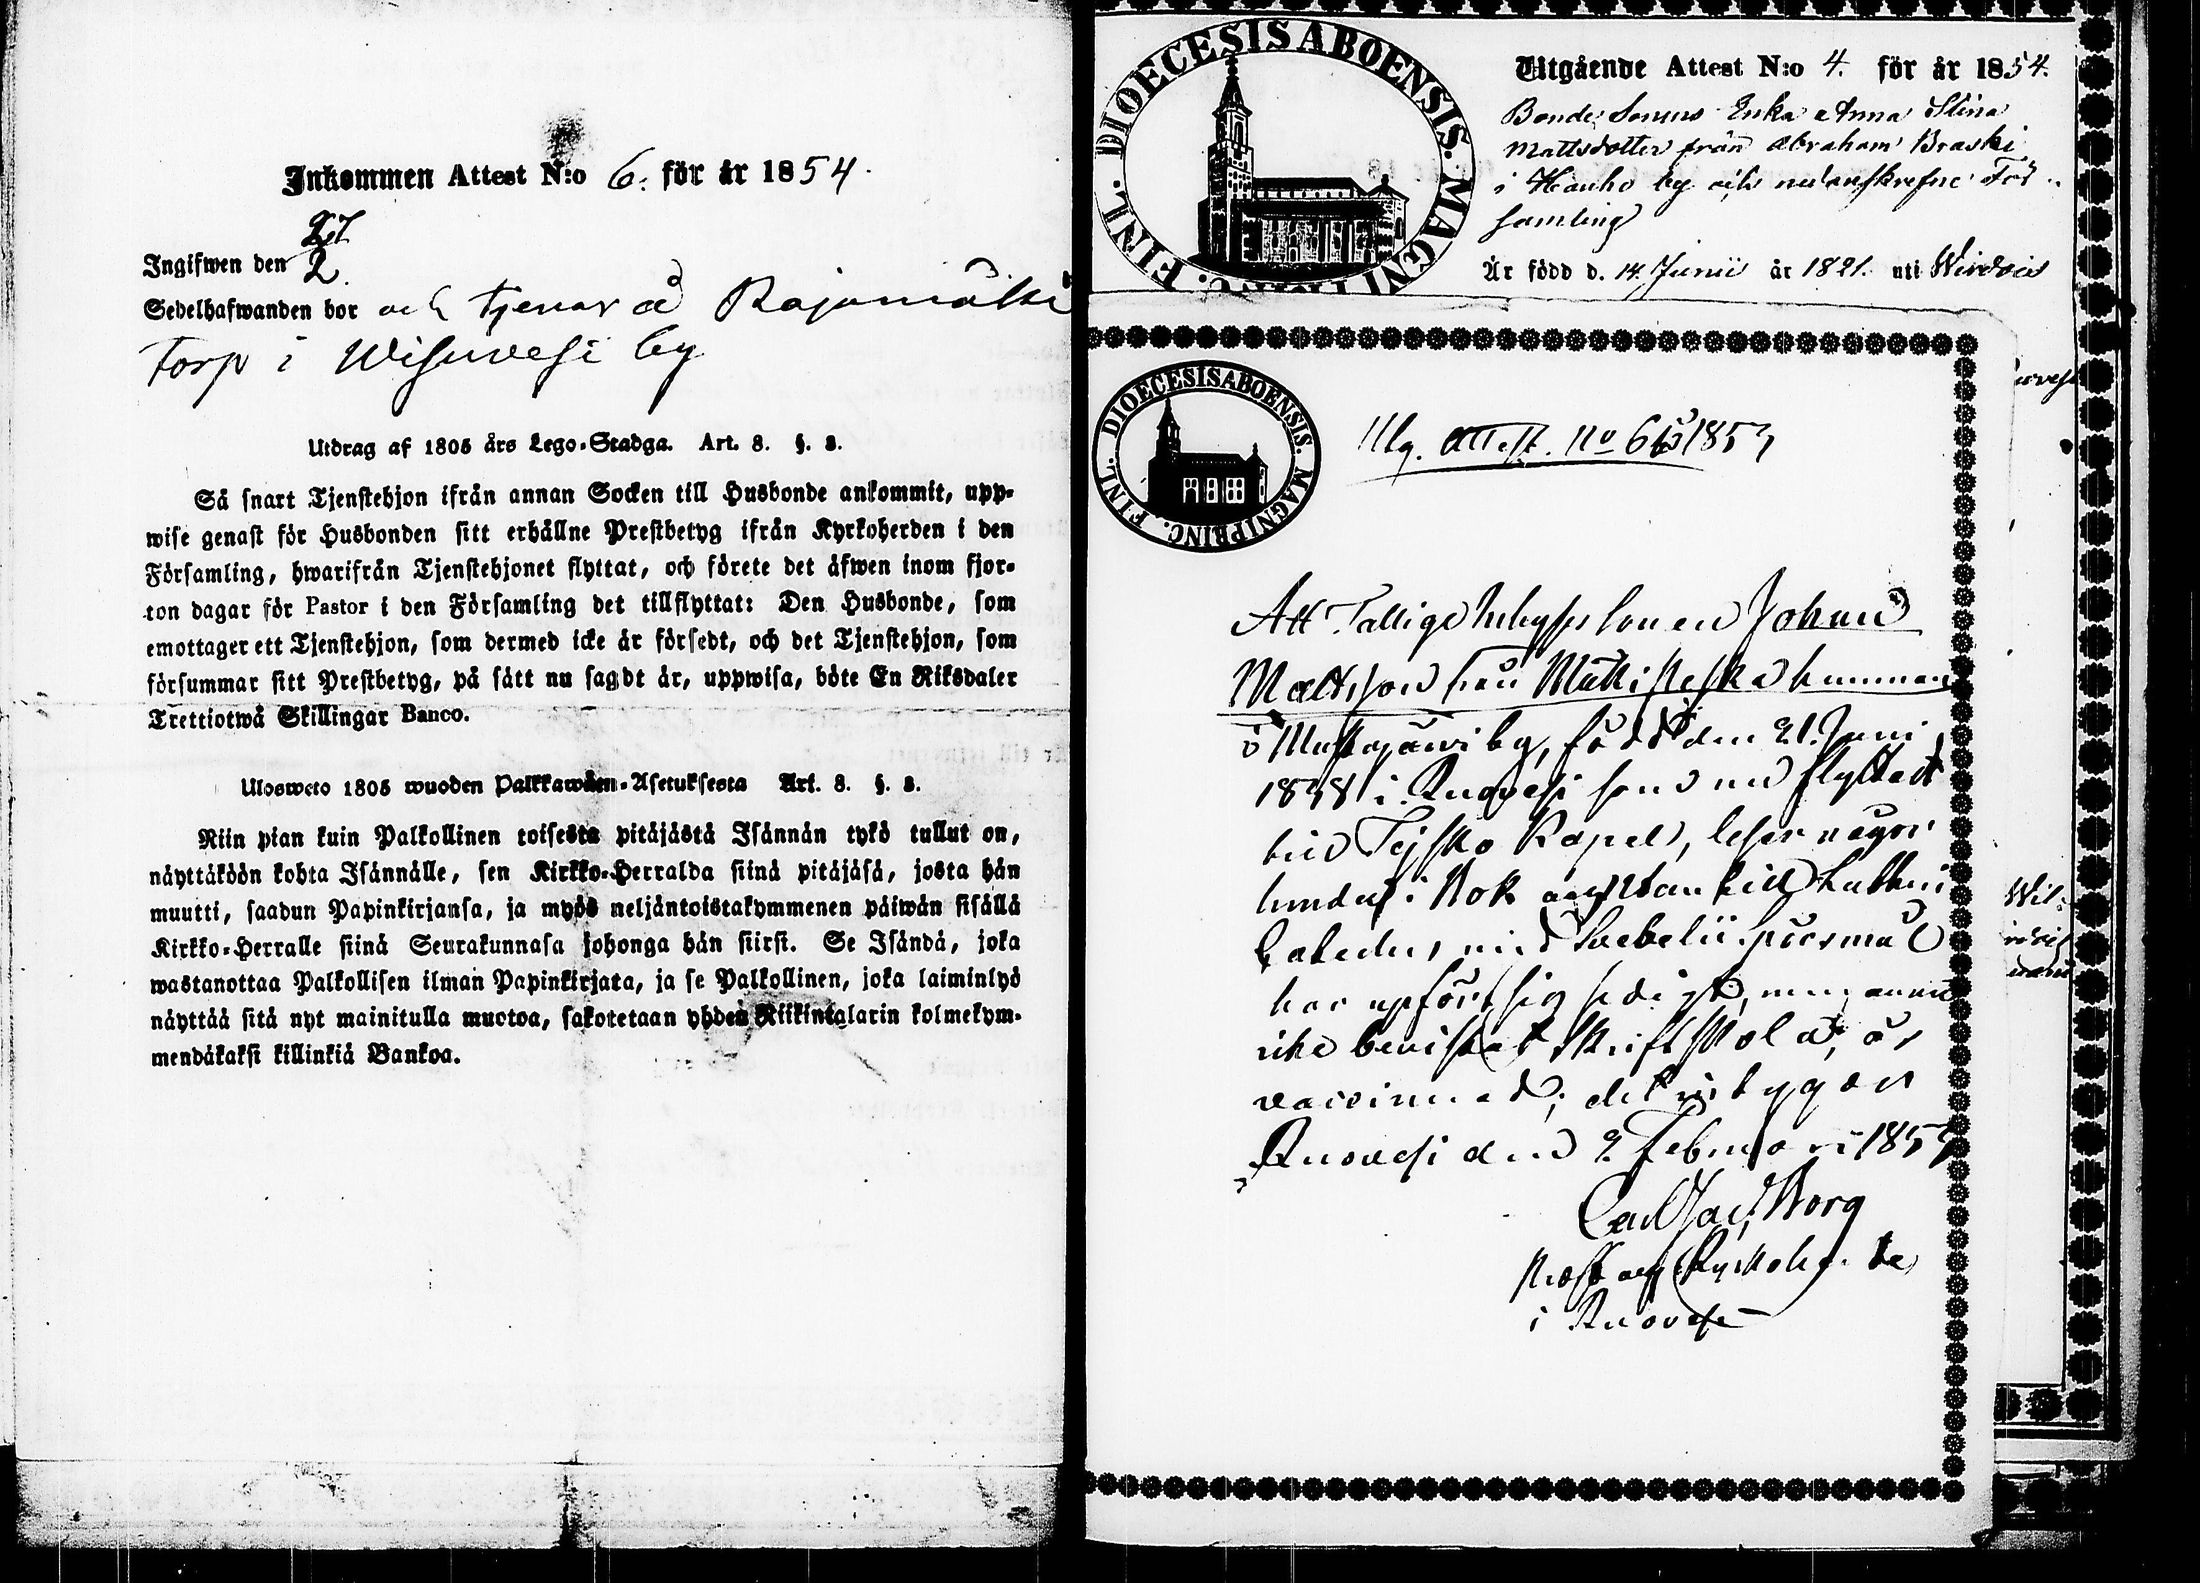 Inkommen Attest N:o 6. för år 1854.
27
Ingifwen den 2
Sedelhafwanden bor och tjenar å Rajamäki
torp i Wisuvesi by
Utdrag af 1805 års Lego-Stadga. Art. 8. §. 2.
Så snart Tjenstehjon ifrån annan Socken till Husbonde ankommit, upp-
wise genast för Husbonden sitt erhållne Prestbetyg ifrån Kyrkoherden i den
Församling, hwarifrån Tjenstehjonet flyttat, och förete det äfwen inom fjor-
ton dagar för Pastor i den Församling det tillflyttat: Den Husbonde, som
emottager ett Tjenstehjon, som dermed icke är försedt, och det Tjenstehjon, som
försummar sitt Prestbetyg, på sätt nu sagdt är, uppwisa, böte En Riksdaler
Trettiotwå Skillingar Banco.
Ulosweto 1805 wuoden Palkkawäen-Asetuksesta Art. 8. §. 2.
Niin pian kuin Palkollinen toisesta pitäjästä Isännän tykö tullut on,
näyttäköön kohta Isännälle, sen Kirkko-Herralda siinä pitäjäsä, josta hän
muutti, saadun Papinkirjansa, ja myös neljäntoistakymmenen päiwän sisällä
Kirkko-Herralle siinä Seurakunnasa johonga hän siirsi. Se Isändä, joka
wastanottaa Palkollisen ilman Papinkirjata, ja se Palkollinen, joka laiminlyö
näyttää sitä nyt mainitulla muotoa, sakotetaan yhden Riikintalarin kolmekym-
mendäkaksi killinkiä Bankoa.
DIOECESIS ABOENSIS. MAGNI PRINC. FINL.
Utgående Attest N:o 4. för år 1854.
Bonde Sonens Enka Anna Stina
Mattsdotter från Abraham Braski
i Hauho by och nedanskrefne För-
samling
Är född d. 14 Junii år 1821. uti Wirdois
DIOECESIS ABOENSIS. MAGNI PRINC. FINL.
Utg. Attest. No 65 1853
Att Fattige Inhyses sonen Johan
Mattsson från
i Mustajärvi by, född den 21. Juni
1838 i Ruovesi som nu flyttat
till Tejsko Kapell, läser någor
lunda i Bok och utan till Lutheri
Cateches med Svebelii spörsmål
har upfört sig sedigt, men ännu
icke bevistat Skriftskola, är
vaccinerad; det betygar
Ruovesi den 2. Februari 1853
Carl Jac. Borg
Prost och Kyrkoherde
i Ruovesi